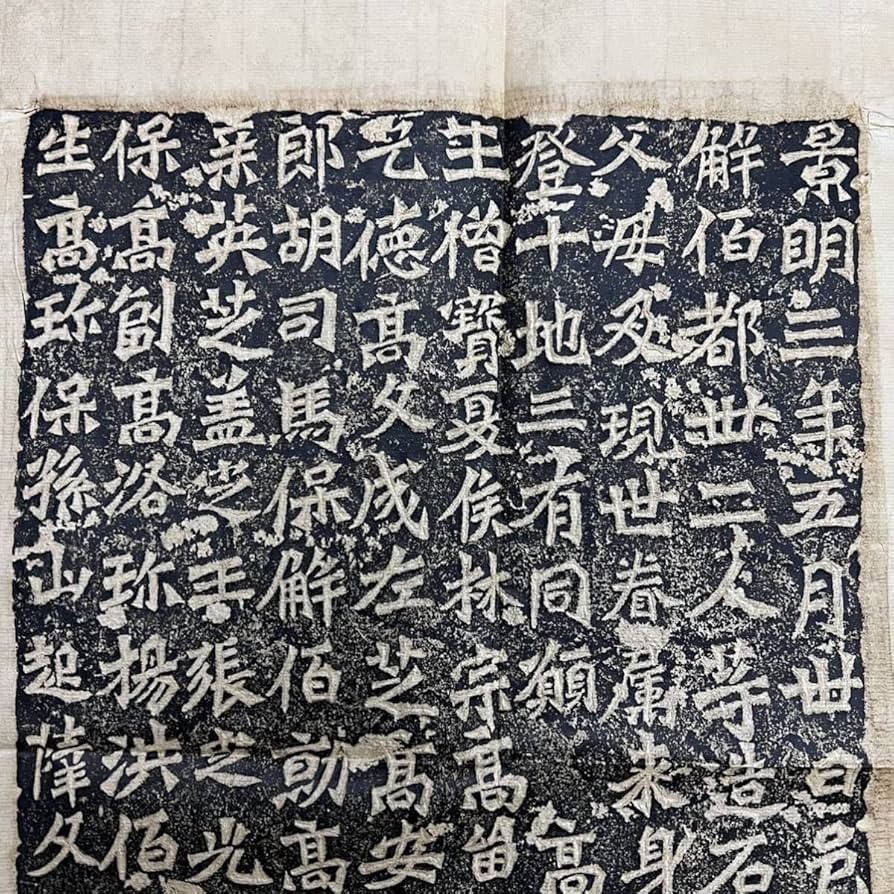 景明三年五月卅日邑
解佰都卅二人等造石
父母及現世眷屬来身
登十地三有同願高
王僧寶夏侯林宗高留
乞德高文成左芝高安
郎胡司馬保解佰勍高
英芝盖芝王張芝光
保高創高洛珎揚洪佰
生高珎保孫山起文